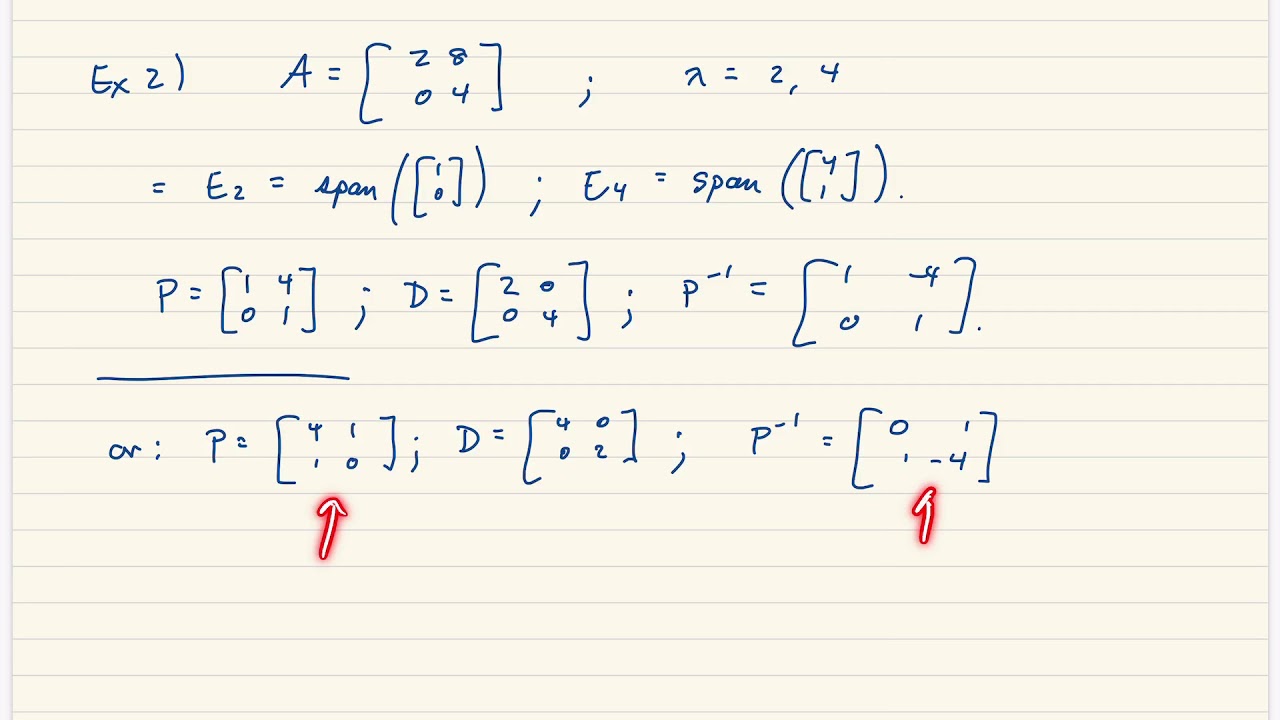 Ex 2) A = [2 8; 0 4] ; λ = 2, 4
= E₂ = span([1; 0]) ; E₄ = span([4; 1]).
P = [1 4; 0 1] ; D = [2 0; 0 4] ; P⁻¹ = [1 -4; 0 1].
or: P = [4 1; 1 0] ; D = [4 0; 0 2] ; P⁻¹ = [0 1; 1 -4]